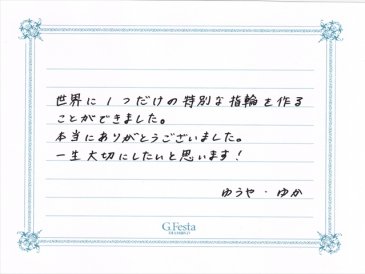 世界に1つだけの特別な指輪を作る
ことができました。
本当にありがとうございました。
一生大切にしたいと思います!
ゆうや・ゆか
G.Festa